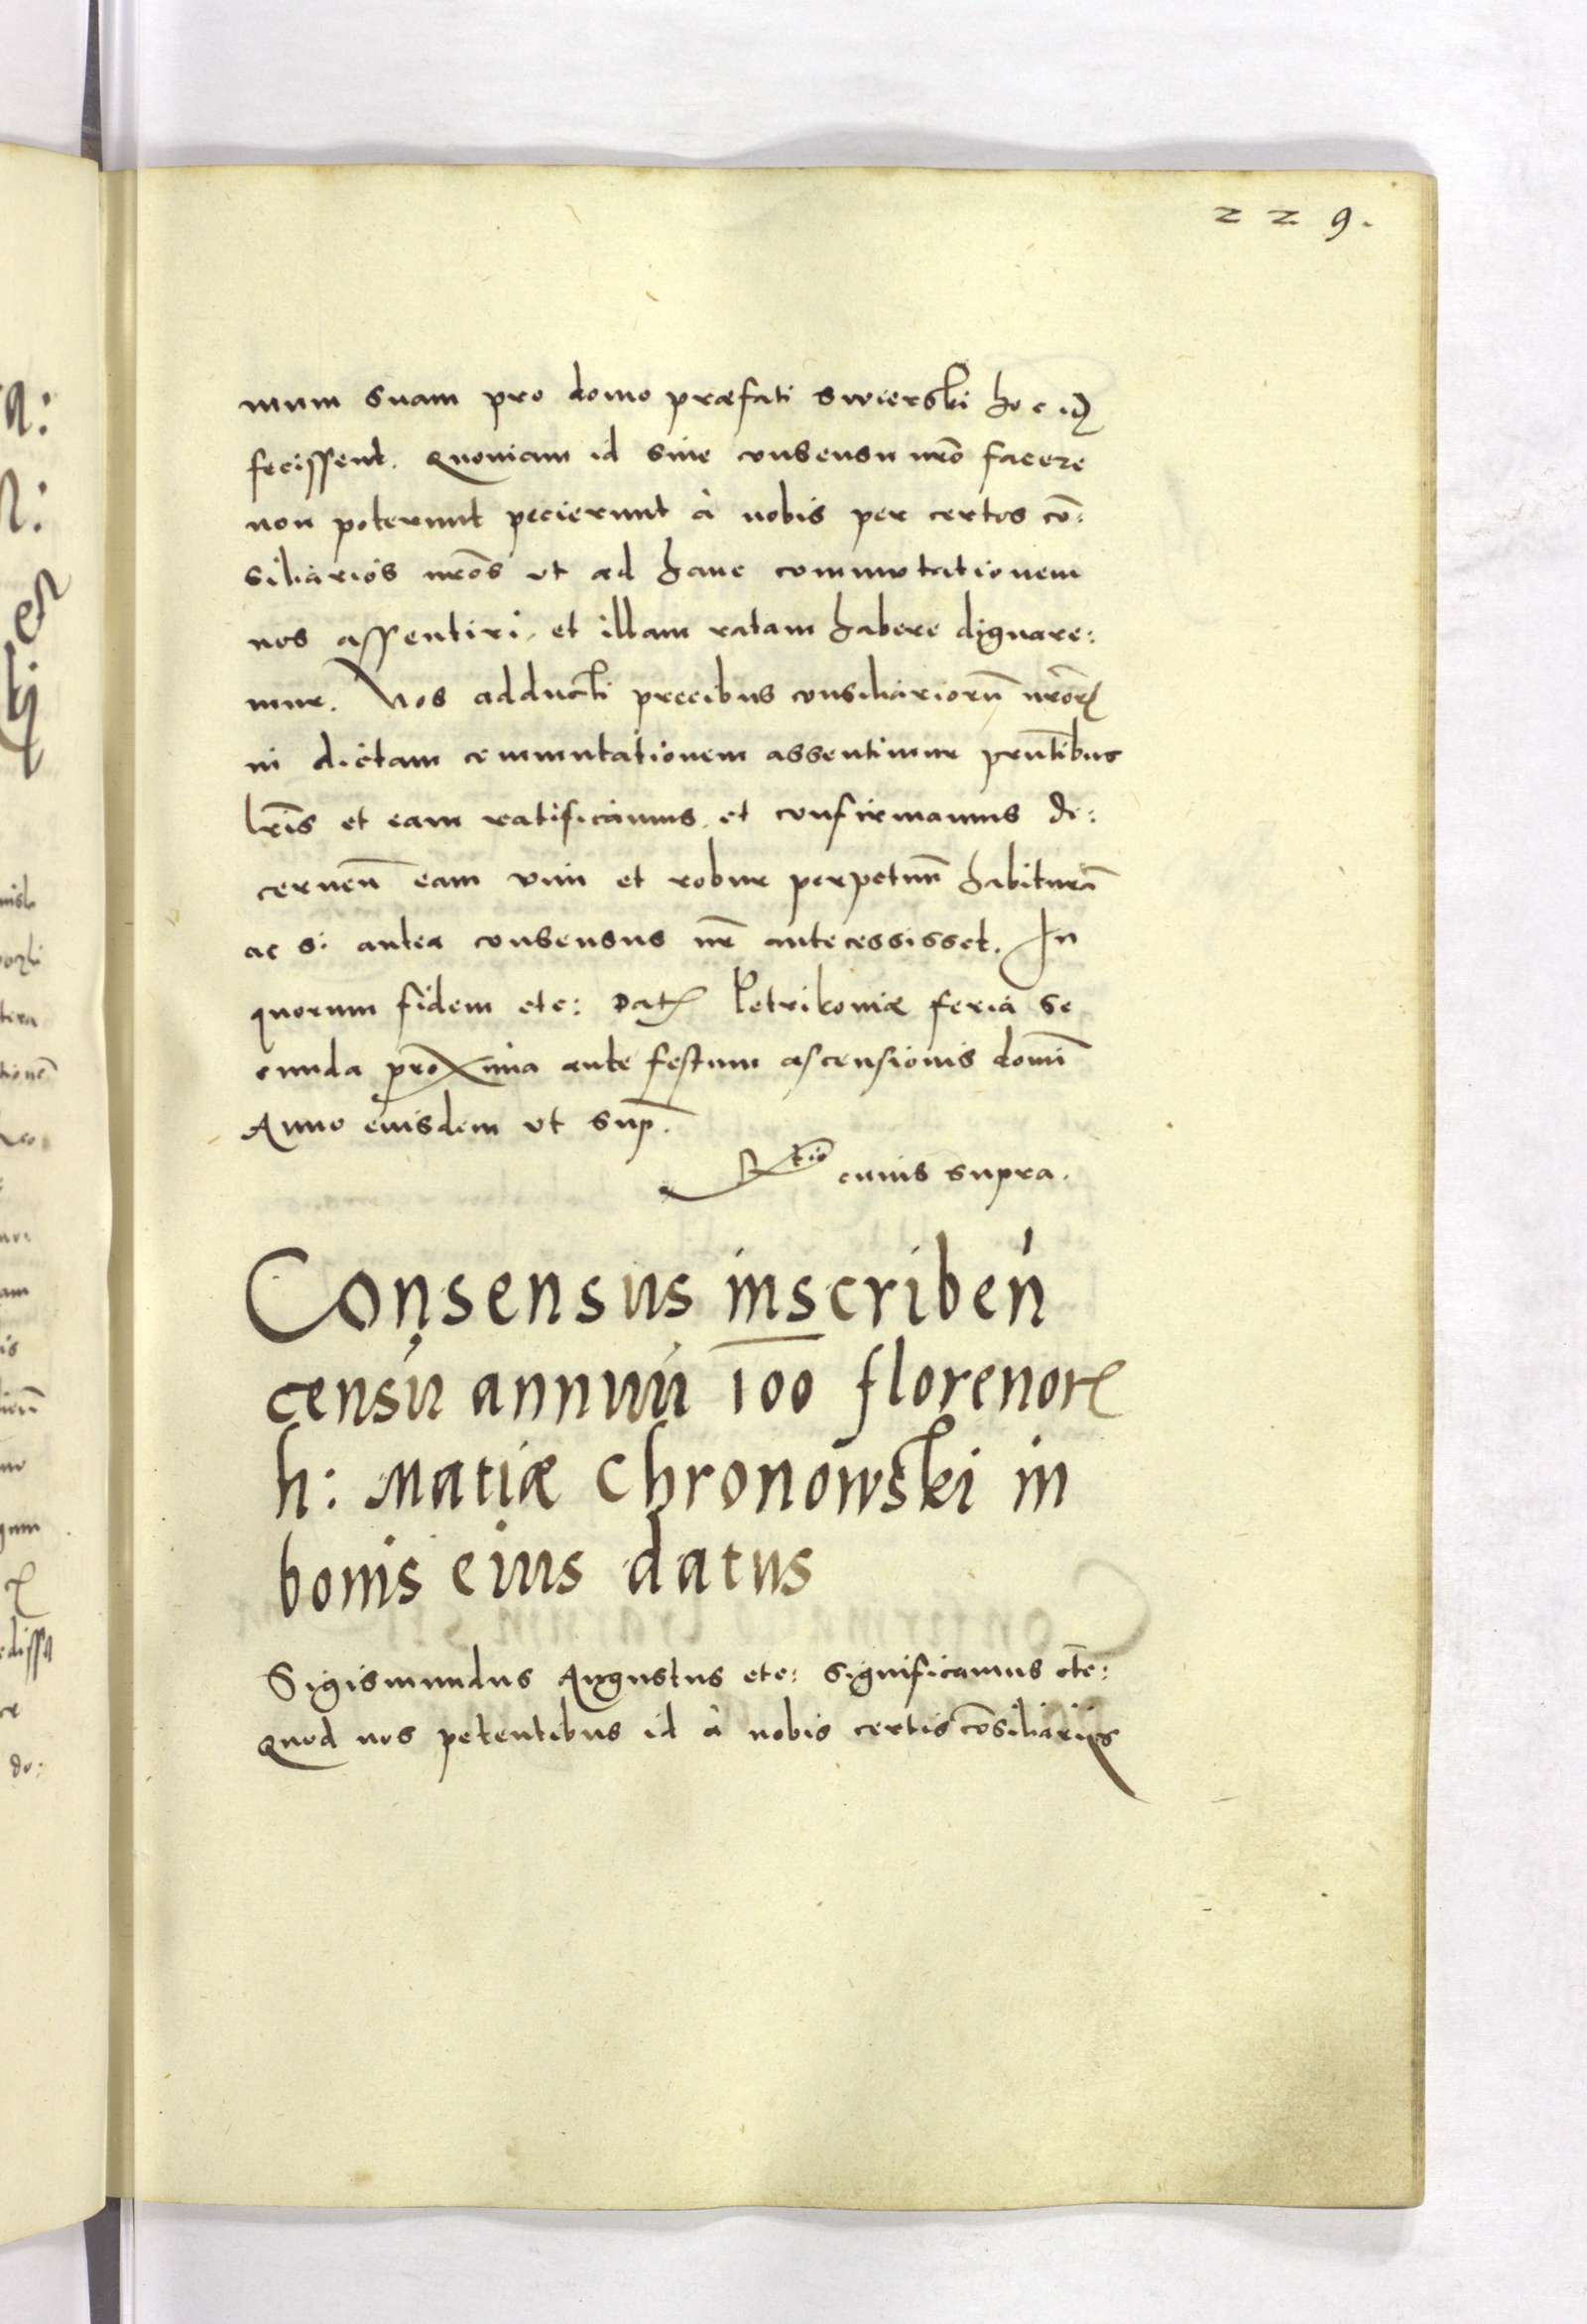 229.
mum suam pro domo præfati swierski hoc idq
fecissent. Quoniam id sine consensu nr̄o facere
non poterunt pecierunt à nobis per certos cō:
siliarios nr̄os ut ad hanc commutationem
nos assentiri, et illam ratam habere dignare:
mur. Nos adducti precibus consiliariorū nr̄oꝝ
in dictam commutationem assentimur pn̄tibus
lr̄is et eam ratificamus et confirmamus de:
cernen̄ eam vim et robur perpetuū habiturā
ac si antea consensus nr̄ antecessisset. In
quorum fidem etc: Datꝭ Petrikoviæ feria se
cunda proxima ante festum ascensionis domī
Anno eiusdem ut sup̄.
Rtio cuius supra.
Consensus inscriben̄
censū annuū 100 florenoꝝ
h: Matiæ Chronowski in
bonis eius datus
Sigismundus Augustus etc: significamus etc̄:
Quod nos petentibus id à nobis certis cōsiliariis